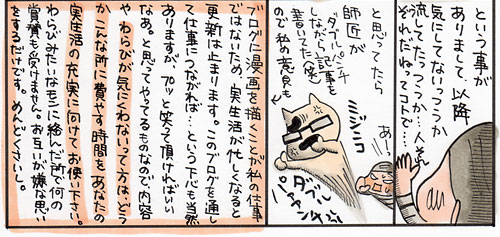 という事が
ありまして、以降
気にしてないっつうか
流してたっつうか…人も
それたね。ってコトで
あ!
と思ってたら
師匠が
“ダブルパンチ”
ながら記事を
書いてた(笑)
ので私の意見も
ミジンコ
ダブル
パァンチ
ブログに漫画を描くことが私の仕事
ではないため、実生活が忙しくなると
更新は止まります。このブログを通し
て仕事につながれば…という下心も当然
ありますが、プッと笑って頂ければいい
なあ。と思ってやってるものなので内容
やわらびが気にくわないって方は…どう
かこんな所に費やす時間をあなたの
実生活の充実に向けてお使い下さい。
わらびみたいなモンに絡んだ所で何の
賞賛も受けません。お互いが嫌な思い
をするだけです。めんどくさいし。